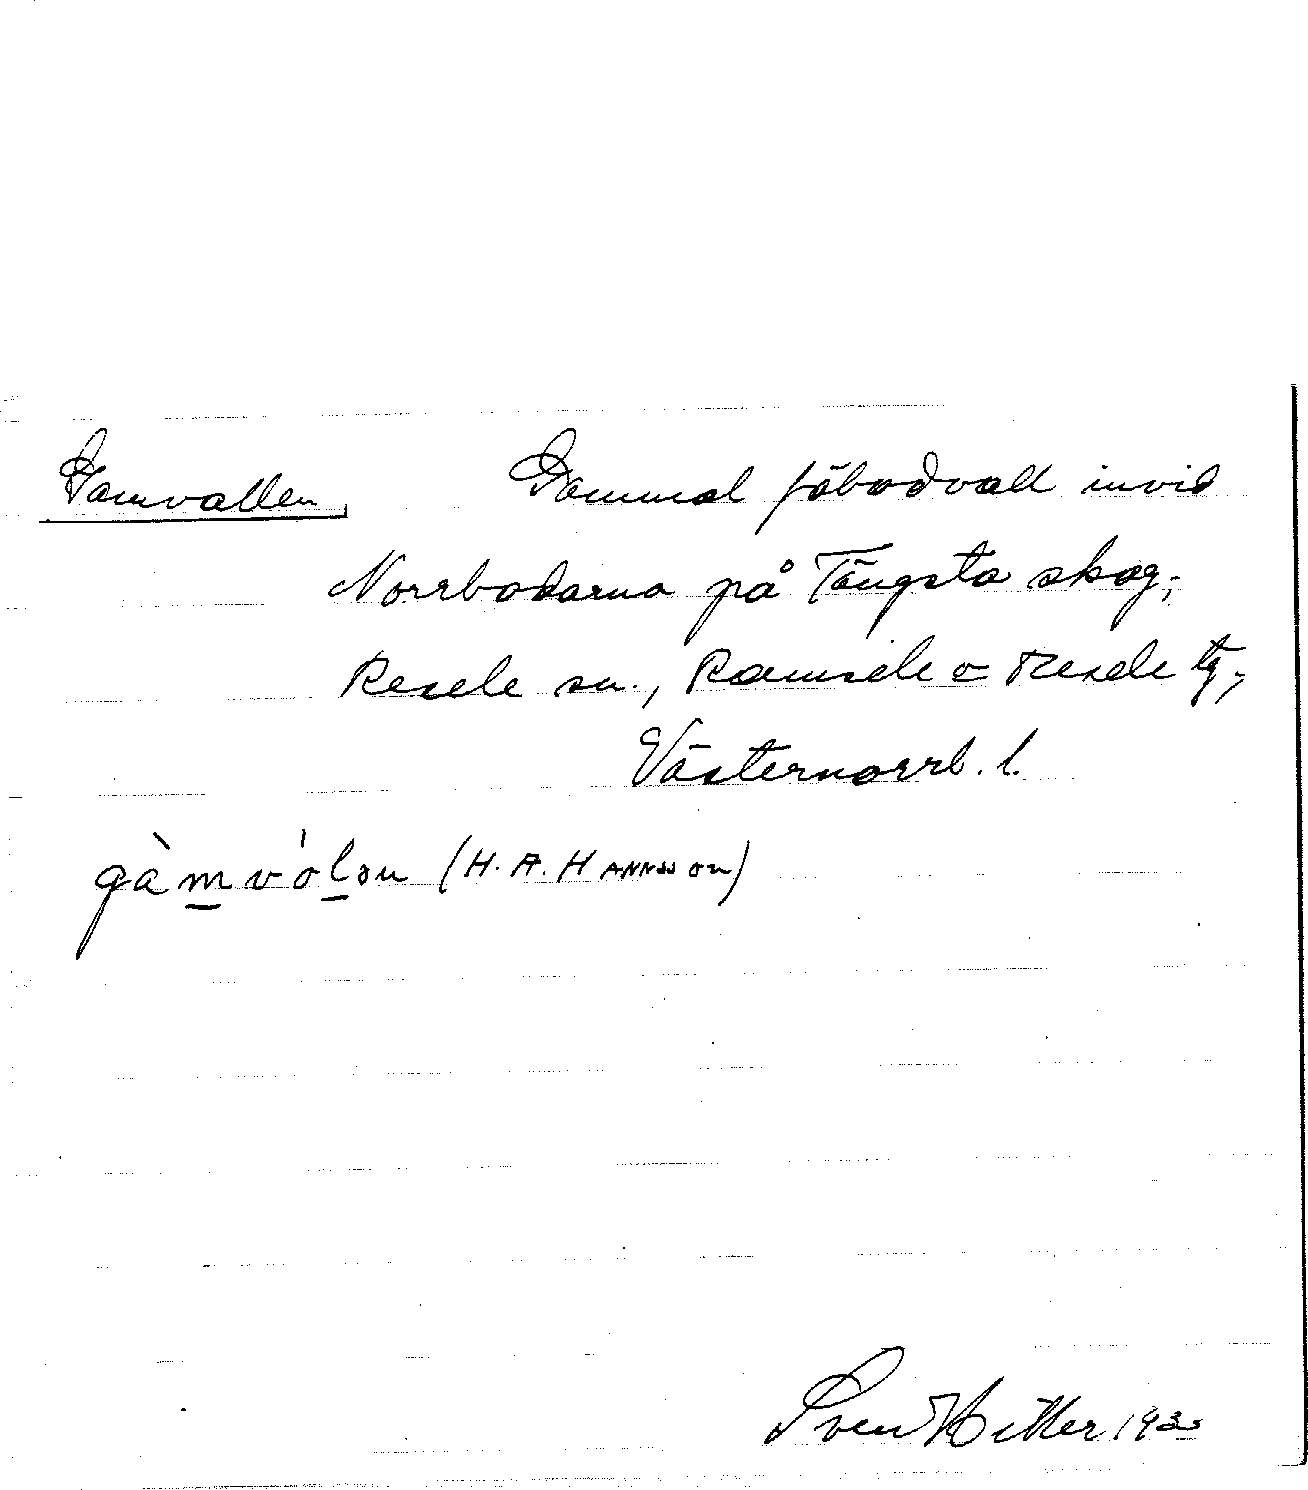 Gamvallen Gammal fäbodvall invid
Norrbodarna på Tängsta skog,
Resele sn., Ramsele o Resele tg,
Västernorrl. l.
gàmvólən (H. A. HANNSSON)
Sven Hitter